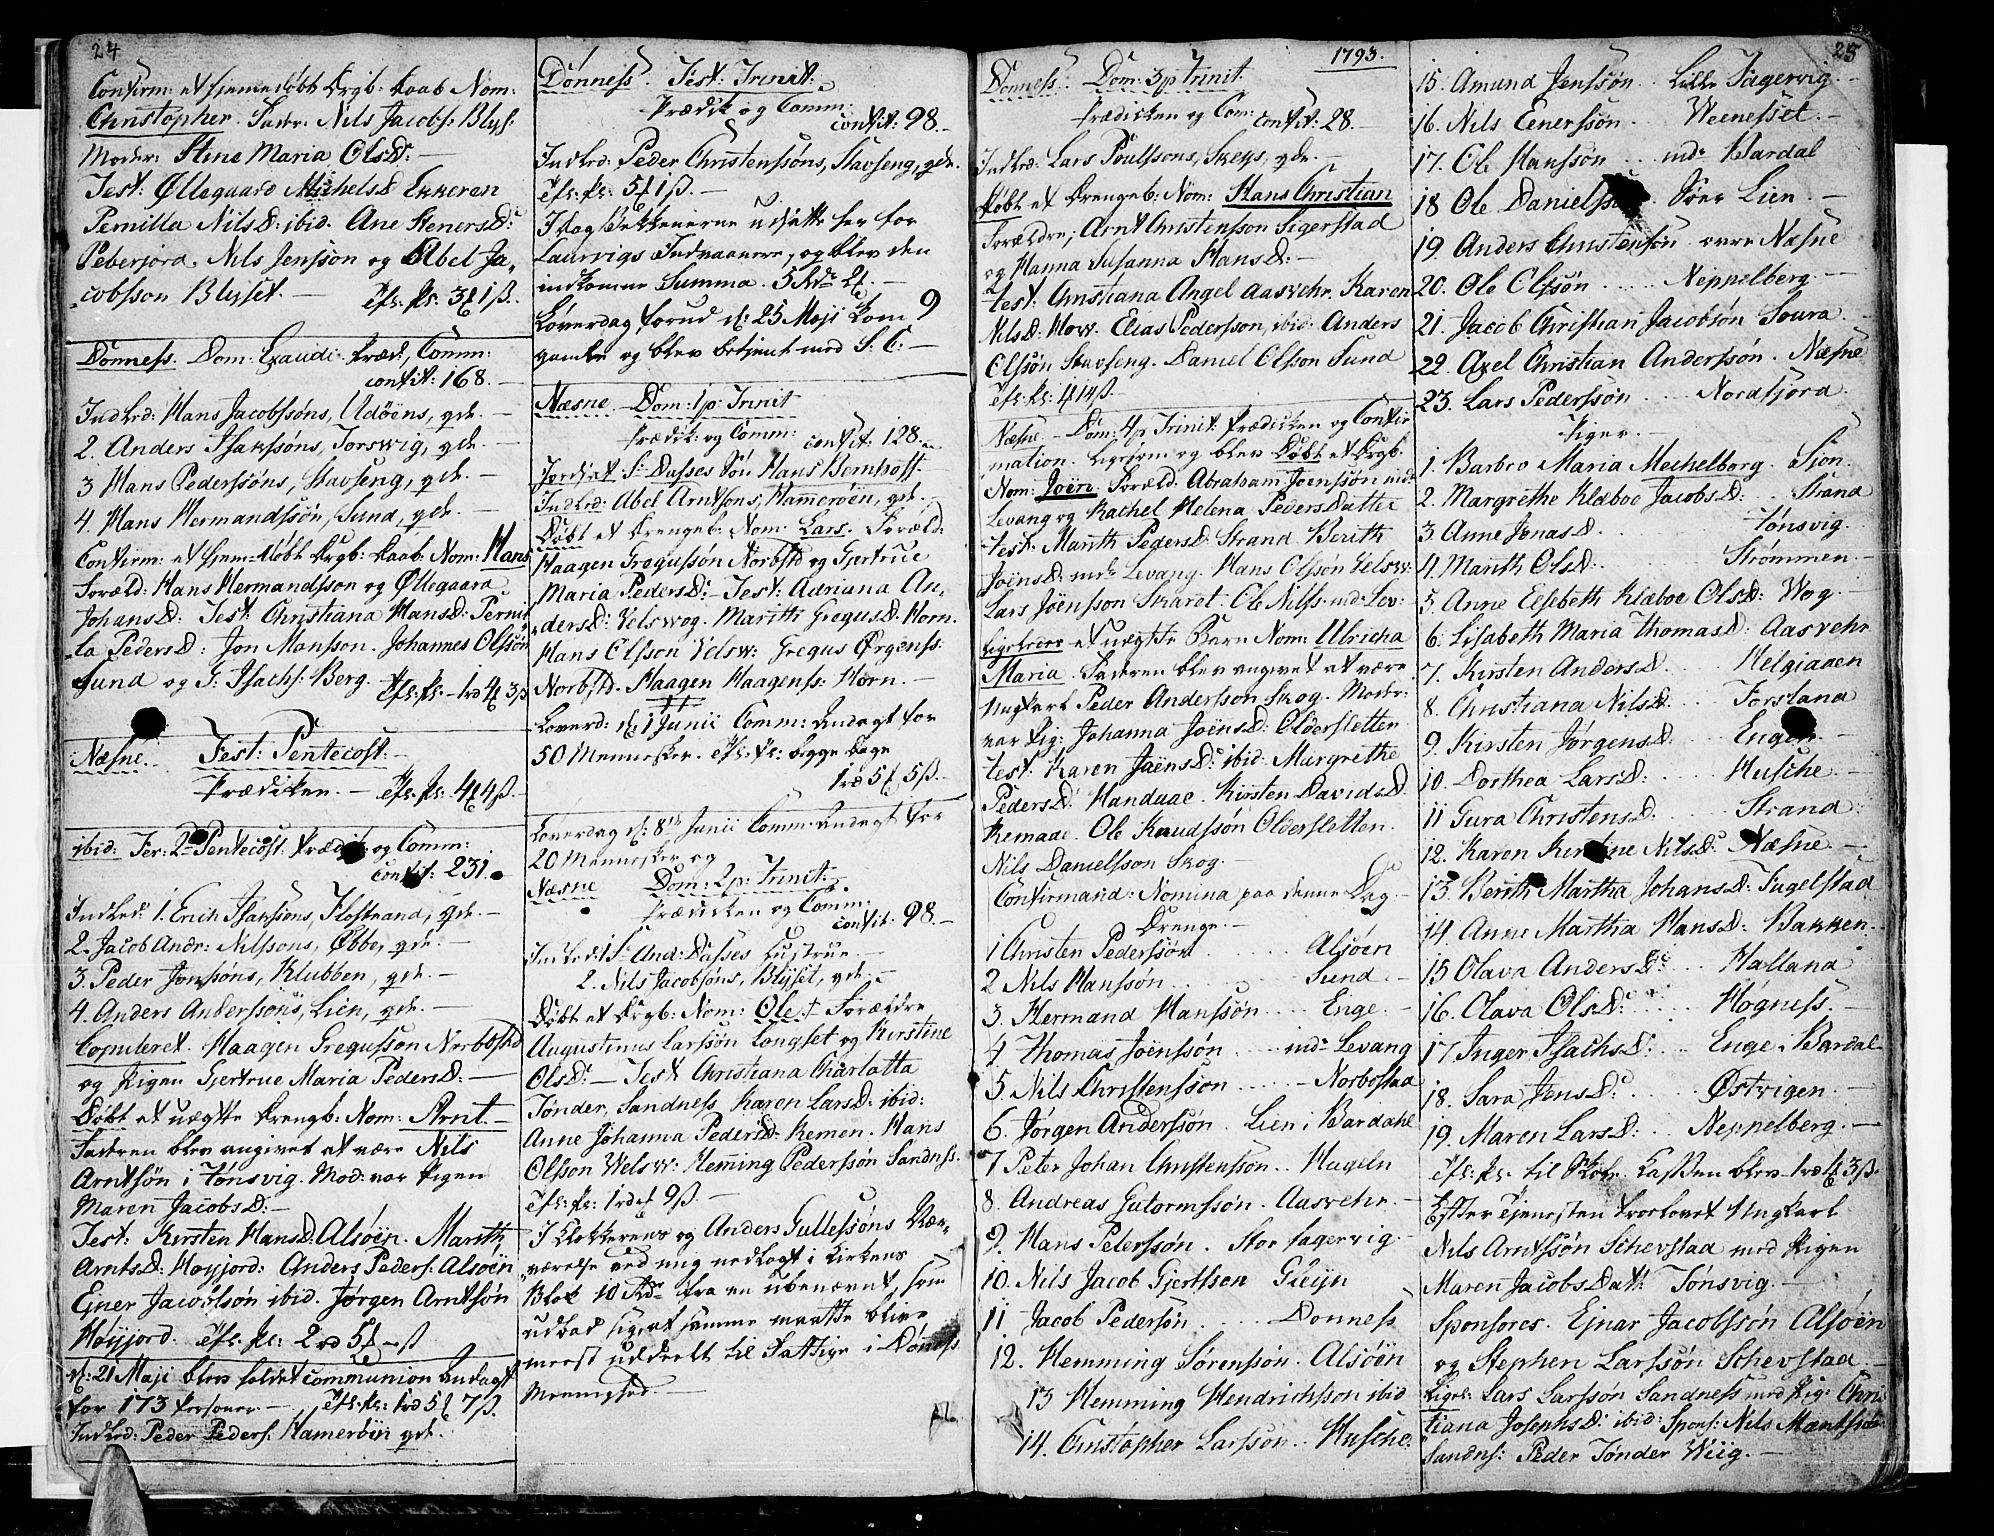 24
Confirm: et hjemedøbt Drgb: kaab Nom:
Christopher. Fadr: Nils Jacobs: Blys:
Moder: Stine Maria OlsD: —
Test: Øllegaard MichelsD Enneren
Pernilla NilsD: ibid. Ane StenersD:
Peberjord. Nils Jensson og Abel Ja,
cobsson Blyset. —
Dønness. Dom: Exaudi. Præd, Comm:
confit: 168. —
Indled: Hans Jacobssøns, Udøens, qde. —
2. Anders Isakssøns, Torswig, qde. —
3 Hans Pederssøns, Stavseng, qde. —
4. Hans Hermandssøn, Sund, qde. —
Confirm: et hjem: døbt Drgb: kaab Nom: Hans
Foræld: Hans Hermandsson og Øllegaard
JohansD: Test: Christiana HansD: Pernil
la PedersD: Jon Monsson. Johannes Olssøn
Sund og I: Isachs: Berg.
Næsne. Fest: Pentecost. —
Prædiken. —
ibid: Fer: 2 Pentecost: Prædik og Comm:
confit: 231.
Indled: 1. Erich Isakssons, Flostrand, qde. —
2. Jacob Andr: Nilssons, Øbbe, qde. —
3. Peder Jonssøns, Klubben, qde. —
4. Anders Anderssøns, Lien, qde. —
Copuleret. Haagen Gregusson Norbostad
og Pigen Gjertrue Maria PedersD: —
Døbt et uægte Drengb: Nom: Arnt. —
Faderen blev angivet at være Nils
Arntsøn i Tønsvig. Mod: var Pigen
Maren JacobsD: —
Test: Kirsten HansD: Alsøen. Marith
ArntsD: Høyjord: Anders Peders: Alsøen
Ejner Jacobssøn ibid. Jørgen Arntsøn
Høyjord.
d: 21 Maji blev holdet communion Andagt
for 173 Personer. —
Indled: Peder Peders: Hamerøen qde.
Dønness. Fest: Trinit:
Prædik og Comm:
confit: 98. —
Indled: Peder Christenssøns, Stavseng, qde.
I Dag Bekkenerne udsatte her for
Laurvigs Indvaanere, og blev den
indkomne Summa. 5 Rdr
Løverdag forud d: 25 Maji kom 9
gamle og blev betjent med S. C: —
Næsne Dom: 1 p: Trinit
Prædik: og Comm: confit: 128.
Jordfæt S: Dasses Søn Hans Bernhoft —
Indled: Abel Arntsons, Hamerøen, qde. —
Døbt et Drengeb: Nom: Lars. Foræld:
Haagen Gregussøn Norbstd og Gjertrue
Maria PedersD: — Test: Adriana An,
dersD: Velswog. Marith GregusD: Horn.
Hans Olsson Velsw: Gregus Ørgenss:
Norbstd. Haagen Haagenss: Horn. —
Løverd: d: 1 Junii Comm: Andagt for
50 Mennesker. begge Dage
Løverdag d: 8th Junii Comm: Andagt for
20 Mennesker og
Næsne Dom: 2 p: Trinit:
Prædiken og Comm:
confit: 98. —
Indled: 1 S: And: Dasses Hustrue. —
2. Nils Jacobsøns, Blyset, qde. —
Døbt et Drgb: Nom: Ole. † Forældre
Augustinus Larssøn Longset og Kirstine
OlsD: — Test Christiana Charlotta
Tønder, Sandness. Karen LarsD: ibid:
Anne Johanna PedersD: Remen. Hans
Olsson Velsw: Heming Pederssøn Sandness.
I Klokkerens og Anders Gullessøns Nær,
værelse ved mig nedlagt i Kirkens
Blok 10 Rdr fra en ubenævnt, som
udbad sig at samme maatte blive
meest uddeelt til Fattige i Dønness
Menighed. —
1793.
Dønness. Dom: 3 p Trinit
Prædiken og Com: confit: 28. —
Indled: Lars Poulssons, Skeys, qde. —
Døbt et Drengeb: Nom: Hans Christian
Forældre; Arnt Christensson Sigerstad
og Hanna Susanna HansD: —
Test: Christiana Angel Aasvehr. Karen
NilsD: How. Elias Pedersson, ibid: Anders
Olssøn Stavseng. Daniel Olsson Sund
Næsne — Dom: 4 p Trinit: Prædiken og Confir
mation. Ligesom og blev Døbt et Drgb:
Nom: Joen. Foræld: Abraham Joenssøn indr
Levang og Rachel Helena PedersDatter
Test: Marith PedersD Strand Berith
JoensD: indr Levang. Hans Olsson Velsw:
Lars Joensson Skaret. Ole Nilss: indr Lev:
Ligeledes et uægte Barn Nom: Ulricha
Maria. Faderen blev angivet at være
Ungkarl Peder Andersson Skog. Moder:
var Pig: Johanna JoensD: Oldersletten
Test: Karen JoensD: ibid: Margrethe
PedersD: Handaae. Kirsten DavidsD:
Remaae. Ole Knudssøn Oldersletten.
Nils Danielsson Skog.
Confirmand: Nomina paa denne Dag —
Drenge. —
1 Christen Pederssøn . . . Alsøen
2 Nils Hanssøn . . . Sund. —
3. Hermand Hanssøn . . . Enge. —
4 Thomas Joenssøn . . . indr Levang
5. Nils Christenssøn . . . Norbostad
6. Jørgen Anderssøn . Lien i Bardahl
7 Peter Johan Christensson . . Hugeln
8. Andreas Gutormssøn . Aasvehr. —
9. Hans Peterssøn . Stor Fagervig. —
10. Nils Jacob Gjertsson Gleijn
11 Jacob Pedersøn . . . Dønness
12. Hemming Sørenssøn . Alsøen
13 Hemming Hendrichsson ibid
14. Christopher Larsson . . Husche.
25
15. Amund Jenssøn . . Lille Fagervig. —
16. Nils Eenerssøn . . Weenesset. —
17. Ole Hanssøn . . . indr Bardal
18 Ole Danielssøn . Søer Lien. —
19 Anders Christensøn . øvre Næsne
20. Ole Olssøn . . . Neppelberg. —
21. Jacob Christian Jacobsøn Soura. —
22. Axel Christian Anderssøn . Næsne
23. Lars Pederssøn . . . Nordfjord.
Piger. —
1. Barbro Maria Mechelborg. Sjon.
2. Margrethe Klæboe JacobsD: Strand
3. Anne JonasD. . . . Tønsvig.
4. Marith OlsD: . . . Strømmen. —
5. Anne Elsebeth Klæboe OlsD: Wog. —
6. Lisabeth Maria ThomasD: Aasvehr
7. Kirsten AndersD. . . . Helgiaaen
8. Christiana NilsD. . . . Forsland
9. Kirsten JørgensD: . . . Engen. —
10. Dorthea LarsD: . . . Husche. —
11 Gura ChristensD: . . . Strand.
12. Karen Kirstine NilsD: Næsne —
13 Berith Martha JohansD: Fugelstad
14. Anne Martha HansD: Bakken. —
15 Olava AndersD: . . . Halland
16. Olava OlsD: . . . Høgness. —
17 Inger IsachsD: . . . Enge. Bardal
18. Sara JensD: . . . Østvigen. —
19. Maren LarsD: . . . Neppelberg. —
Efter Tjenesten Trorlovet Ungkarl
Nils Arntssøn Schevstad med Pigen
Maren JacobsDatt: Tønsvig. —
Sponsores. Ejnar Jacobssøn Alsøen
og Stephen Larssøn Schevstad. —
Ligel: Lars Larssøn Sandness med Pig: Chri
stiana JosephsD: ibid: Spons: Nils Mantsøn
Sandns: Peder Tønder Wiig. —